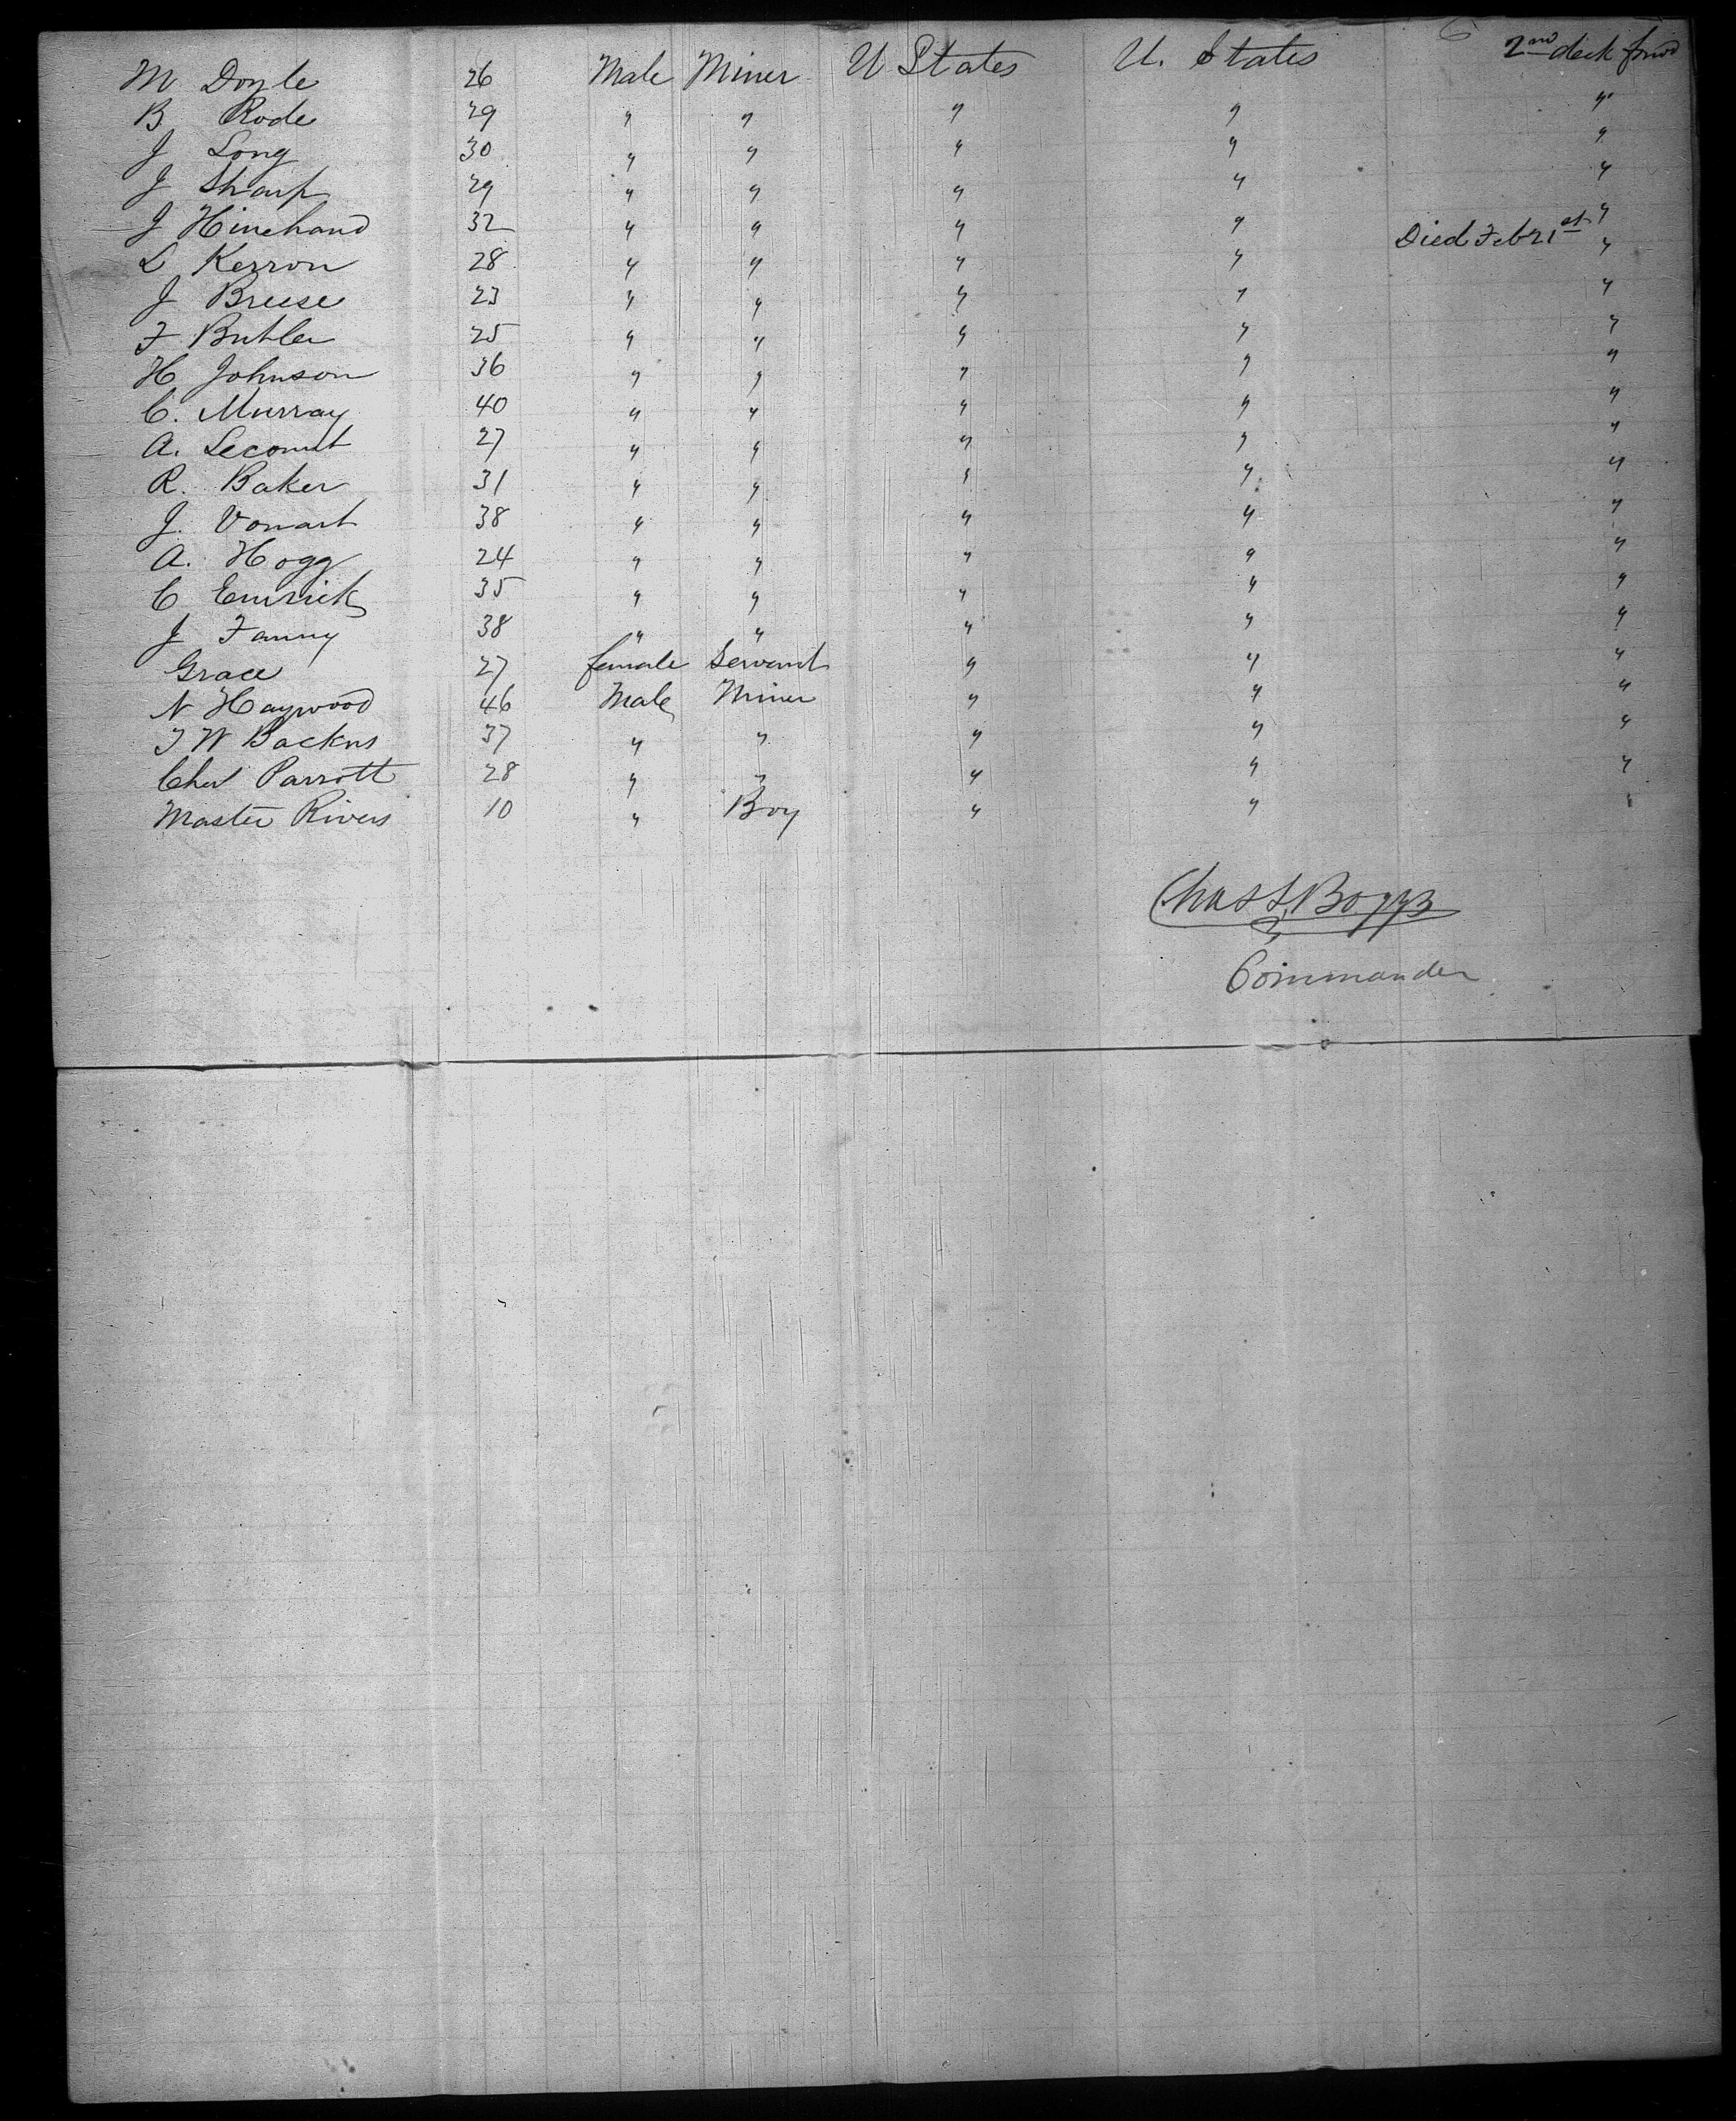 M Doyle 26 Male Miner U States U. States 2nd deck forwd
B. Rode 29 " " " " "
J Long 30 " " " " "
J Sharp 29 " " " " "
J Hinehand 32 " " " " "
L Kerron 28 " " " " Died Feb 21st "
J Breese 23 " " " " "
F Butler 25 " " " " "
H Johnson 36 " " " " "
C. Murray 40 " " " " "
A. Lecomt 27 " " " " "
R. Baker 31 " " " " "
J. Vonart 38 " " " " "
A. Hogg 24 " " " " "
C Emrick 35 " " " " "
J Fanny 38 " " " " "
Grace 27 female Servant " " "
N Haywood 46 Male Miner " " "
J W Backus 37 " " " " "
Chas Parrott 28 " " " " "
Master Rivers 10 " Boy " " "
Chas S. Boggs
Commander